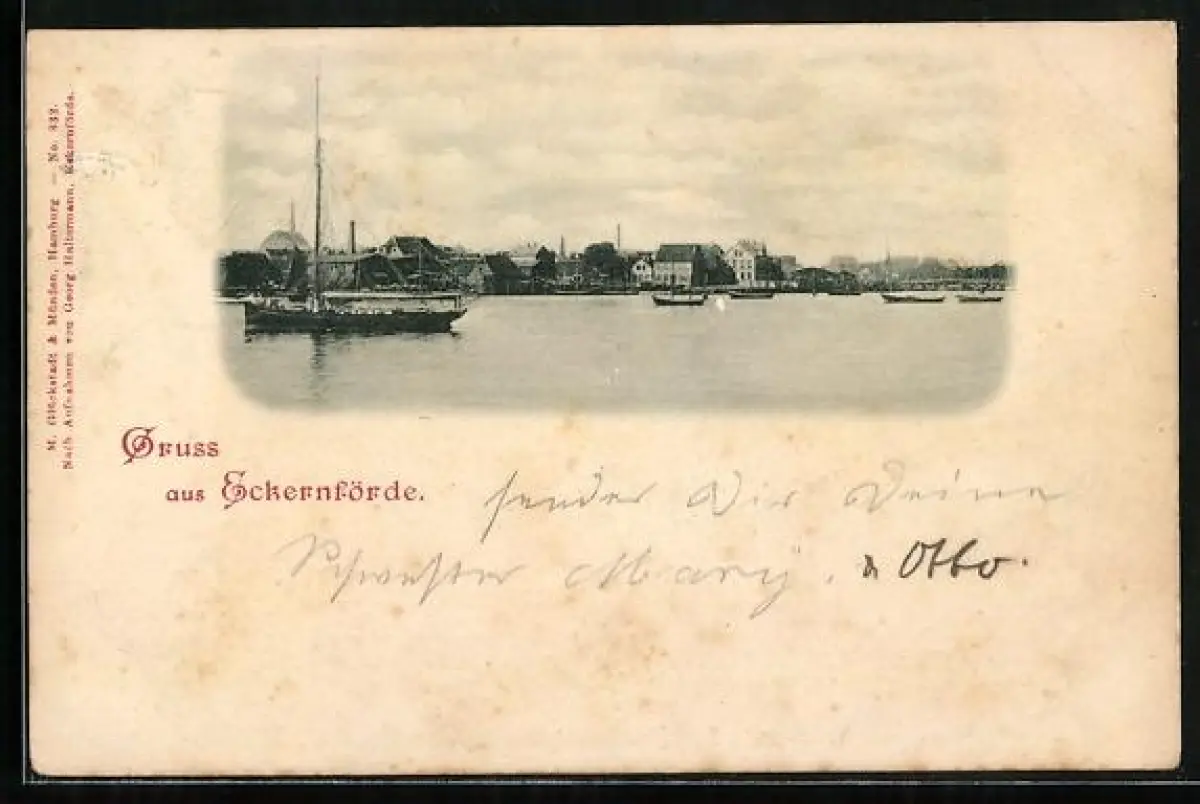 M. Glückstadt & Münden, Hamburg — No. 332.
Nach Aufnahmen von Georg Haltermann, Eckernförde.
Gruss
aus Eckernförde.
sendet Dir Deine
Schwester Mary. u Otto.